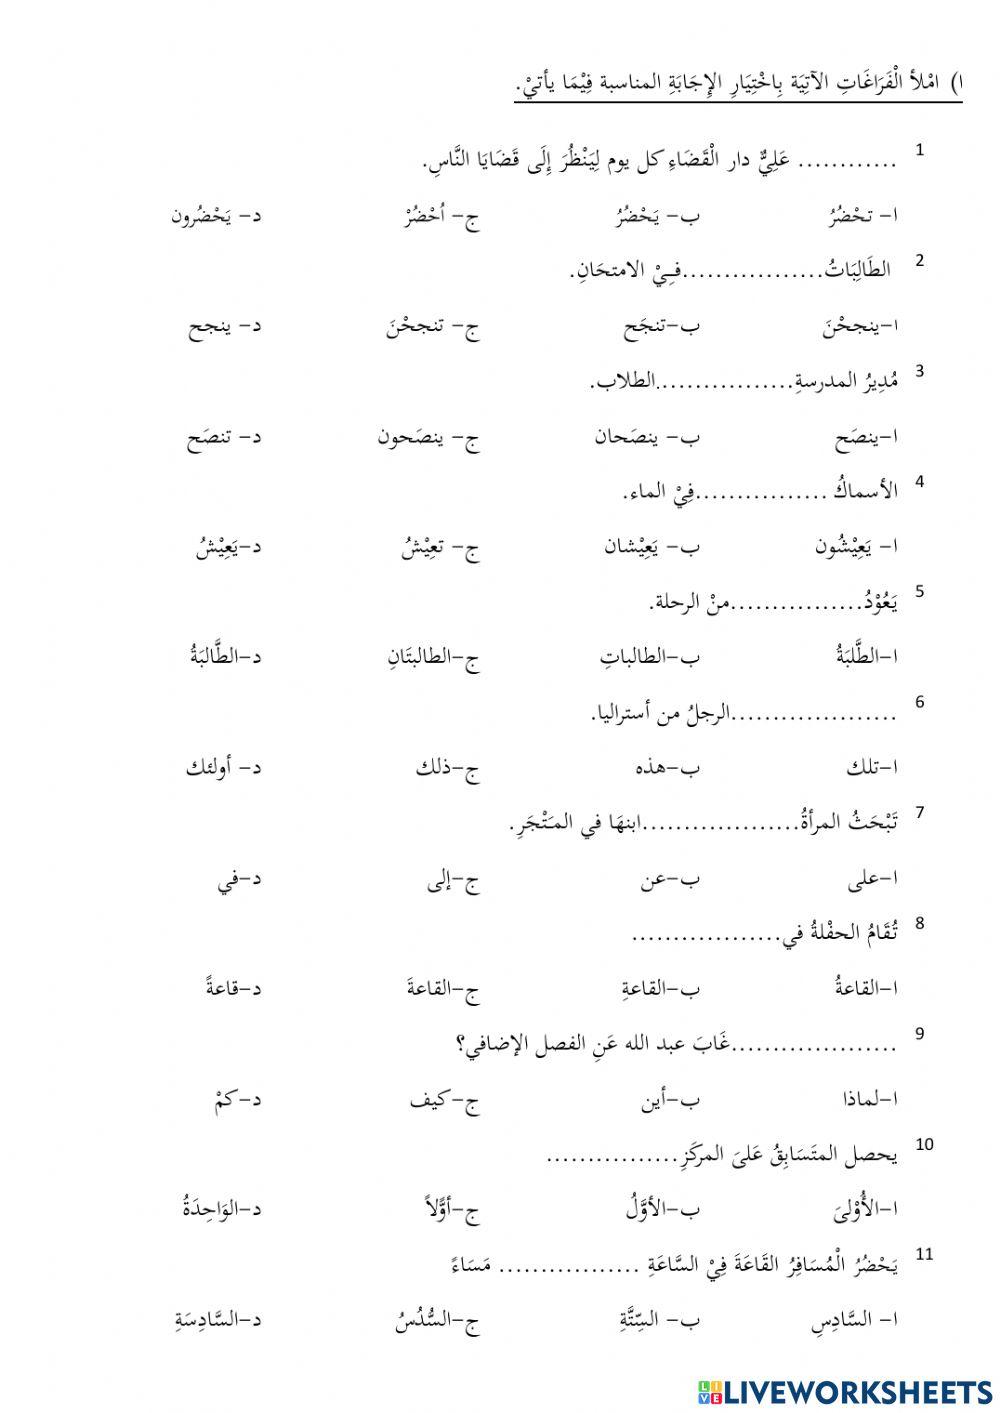 ا) امْلأ الْفَرَاغَاتِ الآتِيَة بِاخْتِيَارِ الإِجَابَةِ المناسبة فِيْمَا يأتيْ.
1 ............ عَلِيٌّ دار الْقَضَاءِ كل يوم لِيَنْظُرَ إِلَى قَضَايَا النَّاسِ.
ا- تحْضُرُ ب- يَحْضُرُ ج- اُحْضُرْ د- يَحْضُرون
2 الطَالِبَاتُ.................فِيْ الامتحَانِ.
ا-ينجحْنَ ب-تنجَح ج- تنجحْنَ د- ينجح
3 مُدِيرُ المدرسةِ.................الطلاب.
ا-ينصَح ب- ينصَحان ج- ينصَحون د- تنصَح
4 الأسماكُ ................فِيْ الماء.
ا- يَعِيْشُون ب- يَعِيْشان ج- تعِيْشُ د-يَعِيْشُ
5 يَعُوْدُ................منْ الرحلة.
ا-الطَّلبَةُ ب-الطالباتِ ج-الطالبتَانِ د-الطَّالبَةُ
6 ....................الرجلُ من أستراليا.
ا-تلك ب-هذه ج-ذلك د- أولئك
7 تَبْحَثُ المرأةُ...................ابنهَا في المَتْجَرِ.
ا-على ب-عن ج-إلى د-في
8 تُقَامُ الحفْلةُ في..................
ا-القاعةُ ب-القاعةِ ج-القاعةَ د-قاعةً
9 ....................غَابَ عبد الله عَنِ الفصل الإضافي؟
ا-لماذا ب-أين ج-كيف د-كمْ
10 يحصل المتَسَابِقُ عَلىَ المركَزِ................
ا-الأُوْلىَ ب-الأوَّلُ ج-أوًّلاً د-الوَاحِدَةُ
11 يَحْضُرُ الْمُسَافِرُ القَاعَةَ فِيْ السَّاعَةِ ................. مَسَاءً
ا- السَّادِسِ ب- السِّتَّةِ ج-السُّدُسُ د-السَّادِسَةِ
LIVE LIVEWORKSHEETS